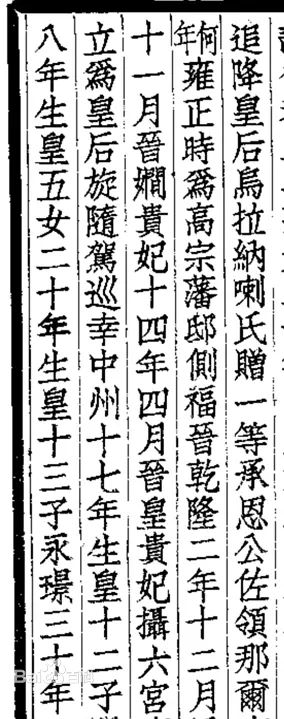 追降皇后烏拉納喇氏贈一等承恩公佐領那爾
何年雍正時爲高宗藩邸側福晉乾隆二年十二月
十一月晉嫺貴妃十四年四月晉皇貴妃攝六宮
立爲皇后旋隨駕巡幸中州十七年生皇十二子
八年生皇五女二十年生皇十三子永璟三十年